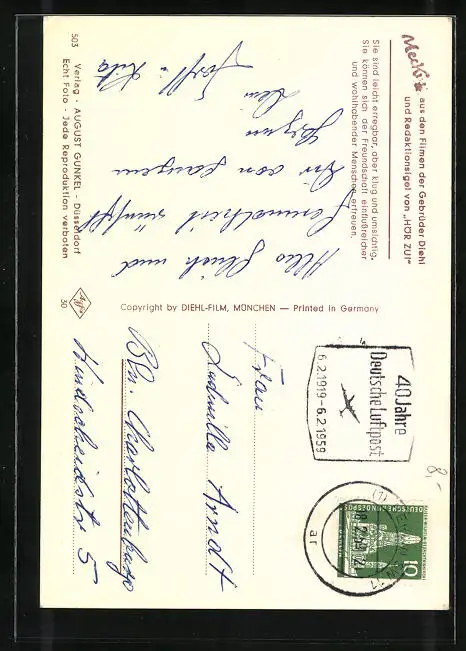 Mecki aus den Filmen der Gebrüder Diehl
und Redaktionsigel von „HÖR ZU!“
Sie sind leicht erregbar, aber klug und umsichtig.
Sie können sich der Freundschaft einflußreicher
und wohlhabender Menschen erfreuen.
Alles Glück und
Gesundheit wünscht
Dir von ganzem
Herzen
Dein
503
Verlag - AUGUST GUNKEL - Düsseldorf
Echt Foto - Jede Reproduktion verboten
Agfa
50
Copyright by DIEHL-FILM, MÜNCHEN — Printed in Germany
40 Jahre
Deutsche Luftpost
6.2.1919-6.2.1959
(1)
11
ar
DEUTSCHE BUNDESPOST
10
8,-
Frau
Ludmilla Arndt
Bln. Charlottenburg
Windscheidstr 5